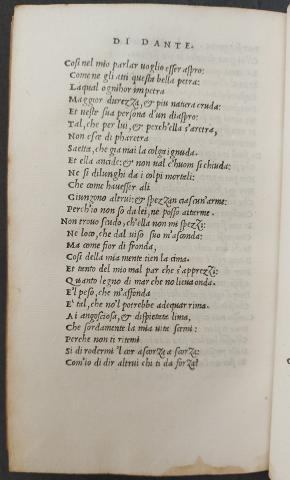 DI DANTE.
Cosi nel mio parlar uoglio esser aspro:
Come ne gli atti questa bella petra:
Laqual ognihor impetra
Maggior durezza, & piu natura cruda:
Et ueste sua persona d'un diaspro:
Tal, che per lui, & perch'ella s'aretra,
Non esce di pharetra
Saetta, che gia mai la colga ignuda.
Et ella ancide: & non ual c'huom si chiuda:
Ne si dilunghi da i colpi mortali:
Che come hauesser ali
Giungono altrui: & spezzan ciascun'arme:
Perch'io non so da lei, ne posso aitarme.
Non trouo scudo, ch'ella non mi spezzi:
Ne loco, che dal uiso suo m'asconda:
Ma come fior di fronda,
Cosi della mia mente tien la cima.
Et tanto del mio mal par che s'apprezzi:
Quanto legno di mar che no lieua onda.
E'l peso, che m'affonda
E' tal, che no'l potrebbe adequar rima.
Ai angosciosa, & dispietata lima,
Che sordamente la mia uita scemi:
Perche non ti ritemi
Si di rodermi'l cor a scorza a scorza:
Com'io di dir altrui chi ti da forza?